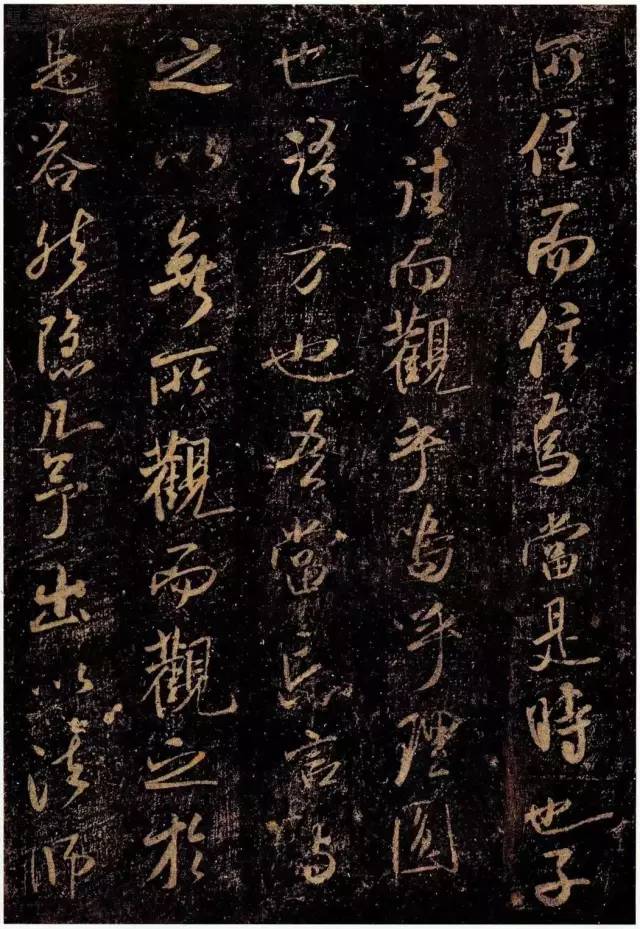 所住而住焉當是時也子
奚往而觀乎嗚乎理圓
也語方也吾當忘言與
之以無所觀而觀之於
是嗒然隱几予出以法師